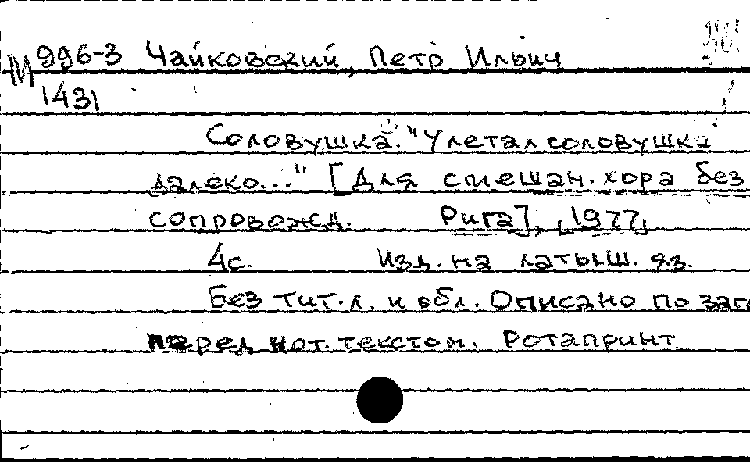 М 996-3 Чайковский, Петр Ильич
1431
Соловушка. "Улетал соловушка
далеко..." [Для смешан. хора без
сопровожд. Рига], [1977]
4с. Изд. на латыш. яз.
Без тит. л. и обл. Описано по заг
перед нот. текстом. Ротапринт